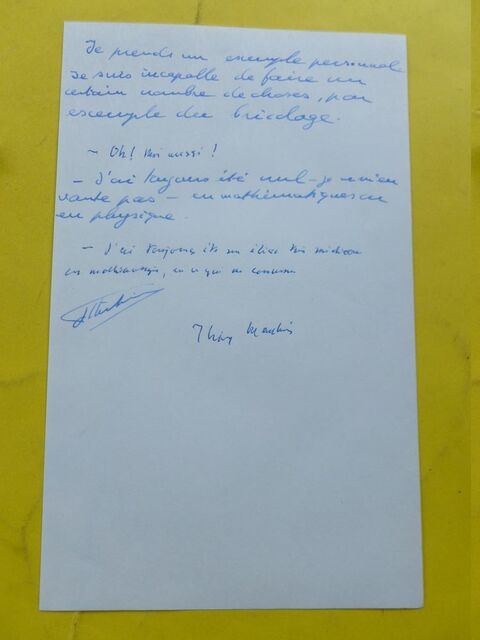 Je prends un exemple personnel
Je suis incapable de faire un
certain nombre de choses, par
exemple du bricolage.
– Oh! Moi aussi!
– J'ai toujours été nul – je m'en
vante pas – en mathématiques ou
en physique.
– J'ai toujours été un élève très médiocre
en mathématiques, en ce qui me concerne
Thierry